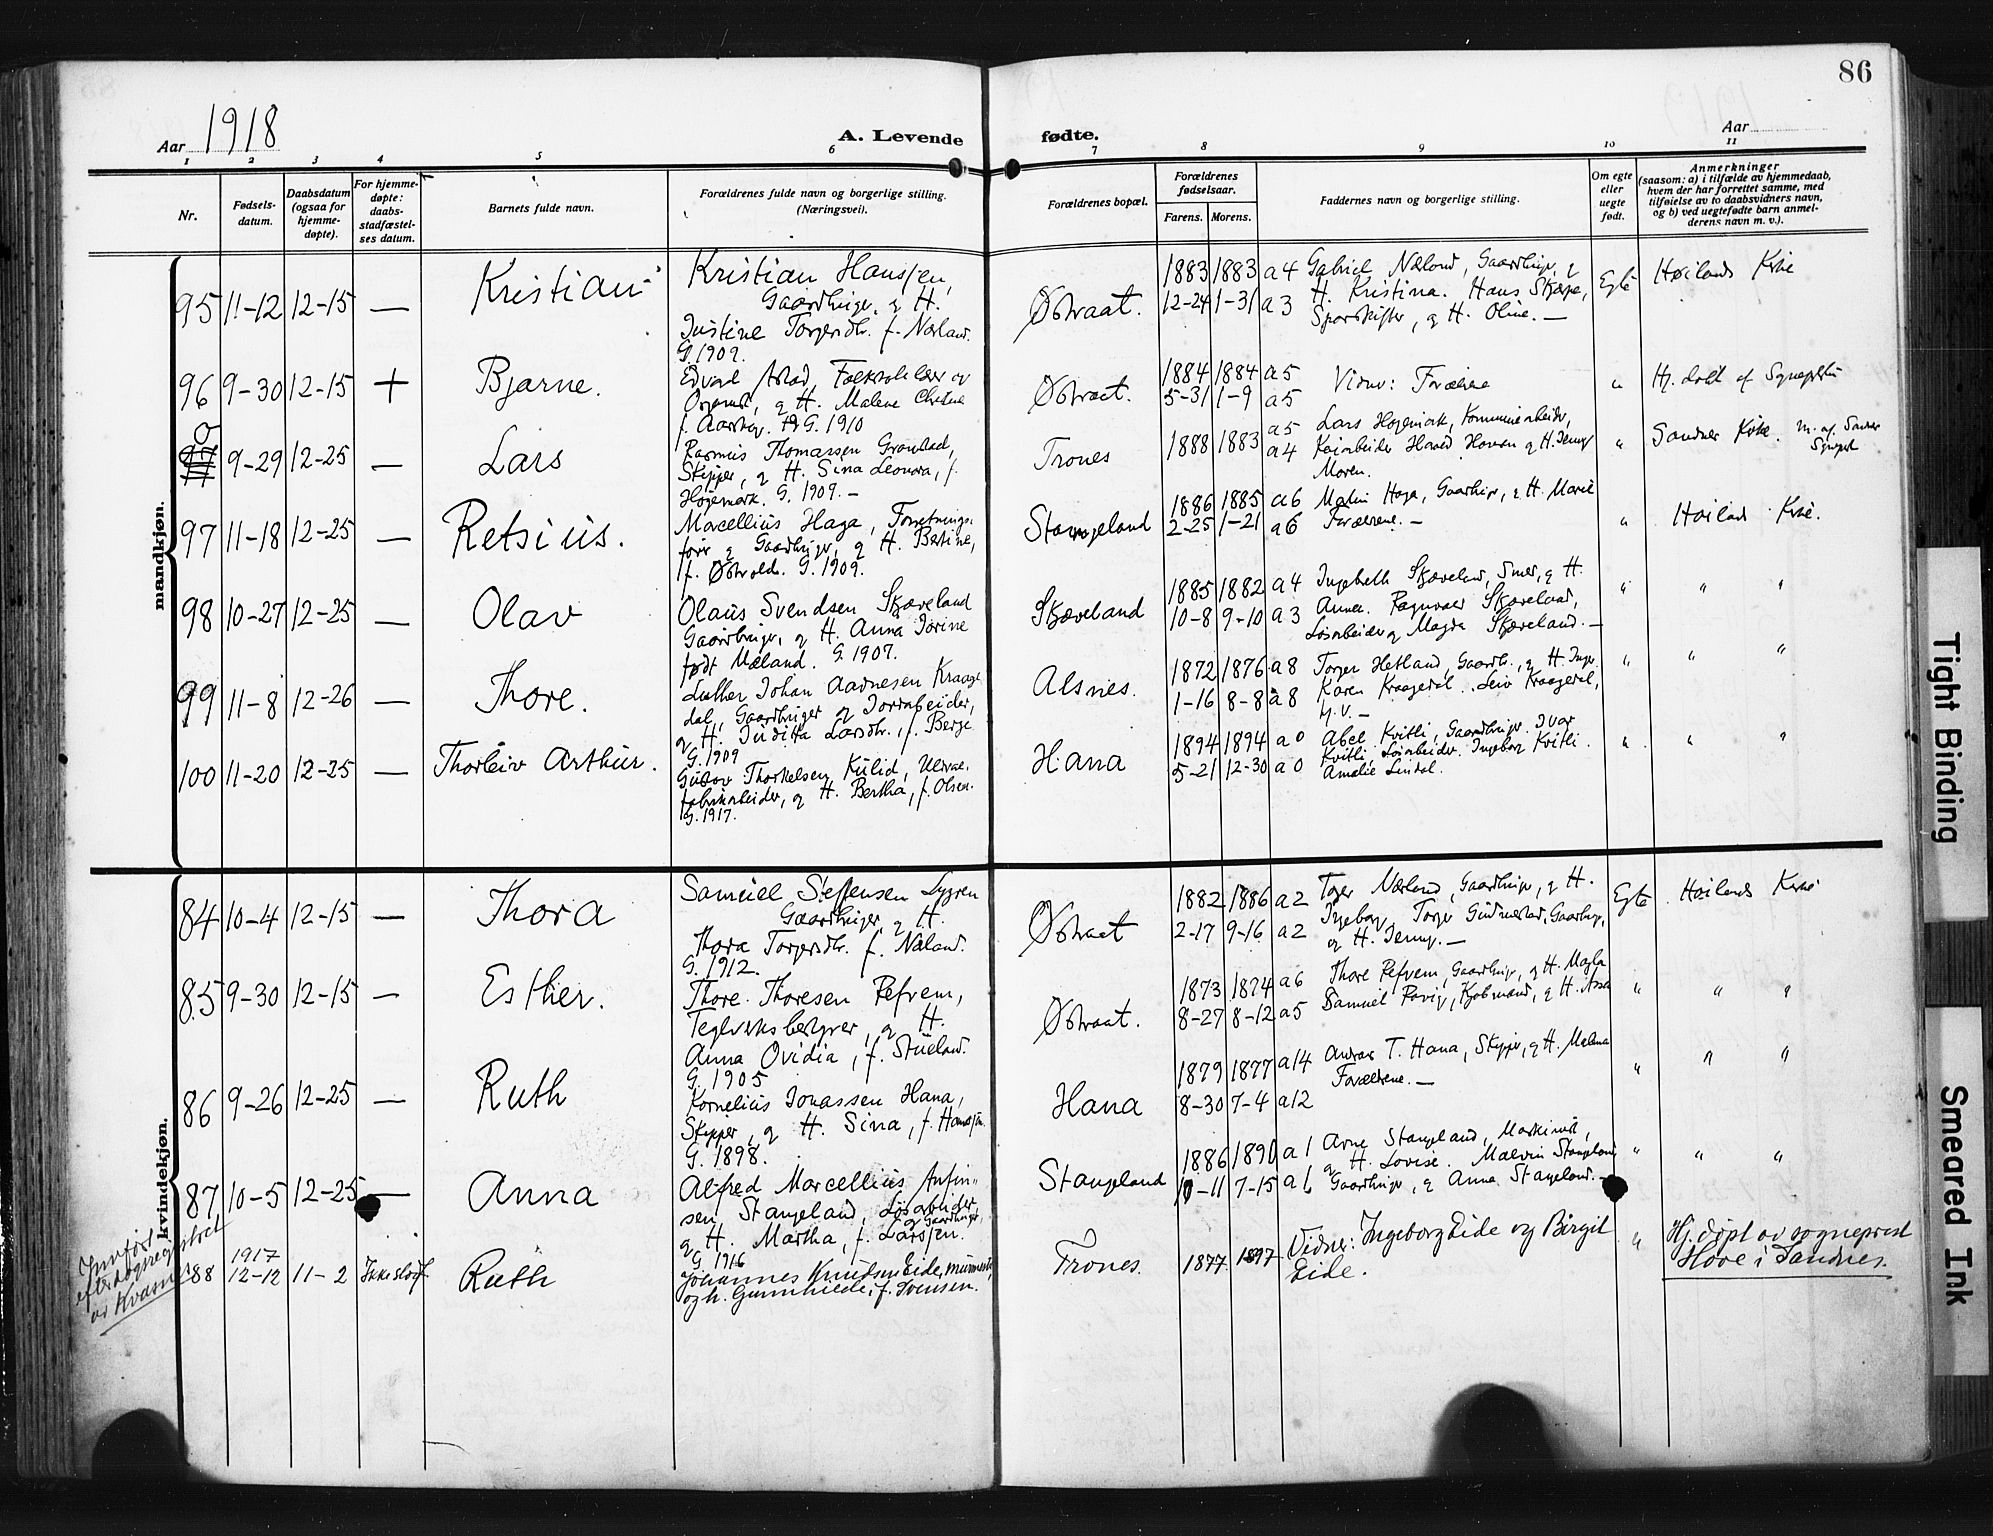 86
Aar 1918
A. Levende
fødte.
Aar
1 2 3 4 5 6 7 8 9 10 11
Nr.
Fødsels-
datum.
Daabsdatum
(ogsaa for
hjemme-
døpte).
For hjemme-
døpte:
daabs-
stadfæstel-
ses datum.
Barnets fulde navn.
Forældrenes fulde navn og borgerlige stilling.
(Næringsvei).
Forældrenes bopæl.
Forældrenes
fødselsaar.
Farens. Morens.
Faddernes navn og borgerlige stilling.
Om egte
eller
uegte
født.
Anmerkninger
(saasom: a) i tilfælde av hjemmedaab,
hvem der har forrettet samme, med
tilføielse av to daabsvidners navn,
og b) ved uegtefødte barn anmel-
derens navn m. v.).
mandkjøn.
95 11-12 12-15 — Kristian
Kristian Hansen,
Gaardbruger, og H.
Justine Torgersdtr. f. Nærland.
G. 1909.
Østraat.
1883 1883 a 4
12-24 1-31 a 3
Gabriel Næland, Gaardbruger, og
H. Kristina. Hans Skjæpe,
H. Oline. —
Egte
Høilands Kirke
96 9-30 12-15 + Bjarne.
Edvard
og H. Malene
G. 1910
Østraat.
1884 1884 a 5
5-31 1-9 a 5
Vidner: Forældrene
"
Hj. døbt af Sognepresten
9-29 12-25 — Lars
Rasmus Thomassen Grønstad,
Skipper, og H. Sina Leonora, f.
Høgemark. G. 1909. —
Trones
1888 1883 a 5
a 4
Lars Høgemark, Kommunearbeider,
"
Sandnes Kirke.
97 11-18 12-25 — Retsius.
Marcellius Haga, Forretnings-
fører og Gaardbruger, og H. Bertine,
f. Østvold. G. 1909.
Stangeland
1886 1885 a 6
2-25 1-21 a 6
Malin Haga, Gaardbruger, og H. Marie
Forældrene. —
"
Høiland Kirke.
98 10-27 12-25 — Olav
Olaus Svendsen Skjæveland
Gaardbruger, og H. Anna Jorine
født Mæland. G. 1907.
Skjæveland
1885 1882 a 4
10-8 9-10 a 3
Ingebreth Skjæveland, Smed, og H.
Anna. Ragnvald Skjæveland,
Løsarbeider og Magda Skjæveland. —
" " "
99 11-8 12-26 — Thore.
Luther Johan Aadnesen Kraage-
dal, Gaardbruger og Jordarbeider,
og H. Juditta Larsdtr., f. Berge
G. 1909
Alsnes.
1872 1876 a 8
1-16 8-8 a 8
Torger Hetland, Gaardb., og H. Inger.
Karen Kraagedal. Leiv Kraagedal,
" " "
100 11-20 12-25 — Thorleiv Arthur.
Gustav Thorkelsen Kulid, Uldvare-
fabrikarbeider, og H. Bertha, f. Olsen.
G. 1917.
Hana
1894 1894 a 0
5-21 12-30 a 0
Abel Kvitli, Gaardbruger. Ivar
Kvitli, Løsarbeider. Ingeborg Kvitli.
Amalie Lindal.
" " "
kvindekjøn.
84 10-4 12-15 — Thora
Samuel Steffensen Lygren
Gaardbruger, og H.
Thora Torgersdtr. f. Næland.
G. 1912.
Østraat
1882 1886 a 2
2-17 9-16 a 2
Torger Nærland, Gaardbruger, og H.
Ingeborg. Torger Gudmestad, Gaardbrug.,
og H. Jenny. —
Egte
Høilands Kirke
85 9-30 12-15 — Esther.
Thore Thoresen Refvem,
Teglverksbestyrer, og H.
Anna Ovidia, f. Stueland.
G. 1905
Østraat.
1873 1874 a 6
8-27 8-12 a 5
Thore Refvem, Gaardbrug., og H. Magla
Samuel Rovig, Kjøbmand, og H. Assa
" " "
86 9-26 12-25 — Ruth
Kornelius Jonassen Hana,
Skipper, og H. Sina, f. Hansen.
G. 1898.
Hana
1879 1877 a 14
8-30 7-4 a 12
Andreas T. Hana, Skipper, og H. Malena
Forældrene. —
" " "
87 10-5 12-25 — Anna
Alfred Marcellius Anfin-
sen Stangeland, Løsarbeider
og Gaardbruger,
og H. Martha, f. Larsen.
G. 1916
Stangeland
1886 1890 a 1
-11 7-15 a 1
Arne Stangeland, Maskinist,
og H. Lovise. Malvin Stangeland
Gaardbruger, og Anna Stangeland. —
" " "
Innført
efter dåpsregistret
av Kvasnes
88 1917
12-12 11-2 Ikke stadf. Ruth
Johannes Knudsen Eide, murmester,
og h. Gunnhilde, f. Svensen.
Trones.
1877 1897
Vidner: Ingeborg Eide og Birgit
Eide.
"
Hj. døpt av sogneprest
Hove i Sandnes.
Tight Binding
Smeared Ink